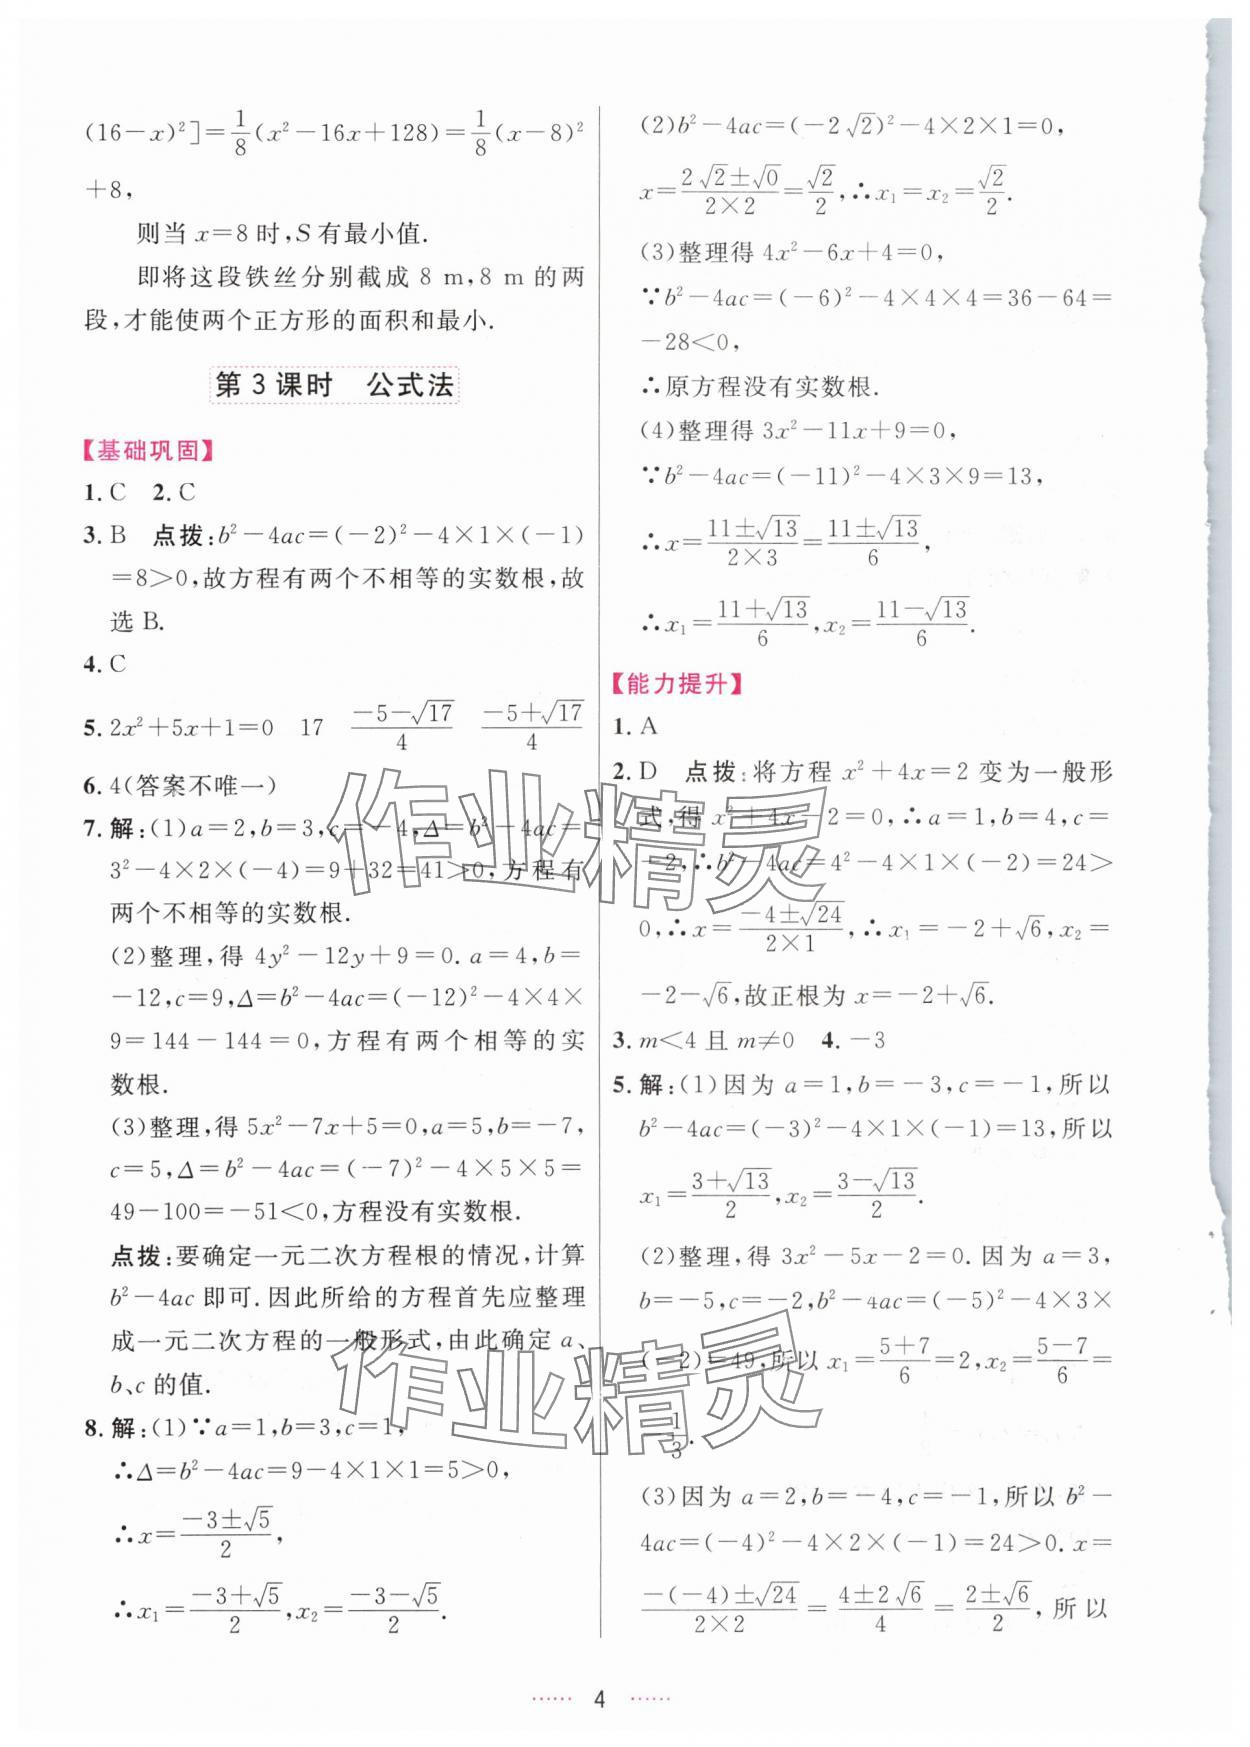 (16－x)²]＝1/8(x²－16x＋128)＝1/8(x－8)²
＋8,
则当 x＝8 时,S 有最小值.
即将这段铁丝分别截成 8 m,8 m 的两
段,才能使两个正方形的面积和最小.
第 3 课时　公式法
【基础巩固】
1. C　2. C
3. B　点拨:b²－4ac＝(－2)²－4×1×(－1)
＝8＞0,故方程有两个不相等的实数根,故
选 B.
4. C
5. 2x²＋5x＋1＝0　17　(－5－√17)/4　(－5＋√17)/4
6. 4(答案不唯一)
7. 解:(1)a＝2,b＝3,c＝－4,Δ＝b²－4ac＝
3²－4×2×(－4)＝9＋32＝41＞0,方程有
两个不相等的实数根.
(2)整理,得 4y²－12y＋9＝0. a＝4,b＝
－12,c＝9,Δ＝b²－4ac＝(－12)²－4×4×
9＝144－144＝0,方程有两个相等的实
数根.
(3)整理,得 5x²－7x＋5＝0,a＝5,b＝－7,
c＝5,Δ＝b²－4ac＝(－7)²－4×5×5＝
49－100＝－51＜0,方程没有实数根.
点拨:要确定一元二次方程根的情况,计算
b²－4ac 即可.因此所给的方程首先应整理
成一元二次方程的一般形式,由此确定 a、
b、c 的值.
8. 解:(1)∵a＝1,b＝3,c＝1,
∴Δ＝b²－4ac＝9－4×1×1＝5＞0,
∴x＝(－3±√5)/2,
∴x₁＝(－3＋√5)/2,x₂＝(－3－√5)/2.
(2)b²－4ac＝(－2√2)²－4×2×1＝0,
x＝(2√2±√0)/(2×2)＝√2/2,∴x₁＝x₂＝√2/2.
(3)整理得 4x²－6x＋4＝0,
∵b²－4ac＝(－6)²－4×4×4＝36－64＝
－28＜0,
∴原方程没有实数根.
(4)整理得 3x²－11x＋9＝0,
∵b²－4ac＝(－11)²－4×3×9＝13,
∴x＝(11±√13)/(2×3)＝(11±√13)/6,
∴x₁＝(11＋√13)/6,x₂＝(11－√13)/6.
【能力提升】
1. A
2. D　点拨:将方程 x²＋4x＝2 变为一般形
式,得 x²＋4x－2＝0,∴a＝1,b＝4,c＝
－2,∴b²－4ac＝4²－4×1×(－2)＝24＞
0,∴x＝(－4±√24)/(2×1),∴x₁＝－2＋√6,x₂＝
－2－√6,故正根为 x＝－2＋√6.
3. m＜4 且 m≠0　4. －3
5. 解:(1)因为 a＝1,b＝－3,c＝－1,所以
b²－4ac＝(－3)²－4×1×(－1)＝13,所以
x₁＝(3＋√13)/2,x₂＝(3－√13)/2.
(2)整理,得 3x²－5x－2＝0. 因为 a＝3,
b＝－5,c＝－2,b²－4ac＝(－5)²－4×3×
(－2)＝49,所以 x₁＝(5＋7)/6＝2,x₂＝(5－7)/6＝
－1/3.
(3)因为 a＝2,b＝－4,c＝－1,所以 b²－
4ac＝(－4)²－4×2×(－1)＝24＞0. x＝
(－(－4)±√24)/(2×2)＝(4±2√6)/4＝(2±√6)/2,所以
作业精灵
作业精灵
······ 4 ······